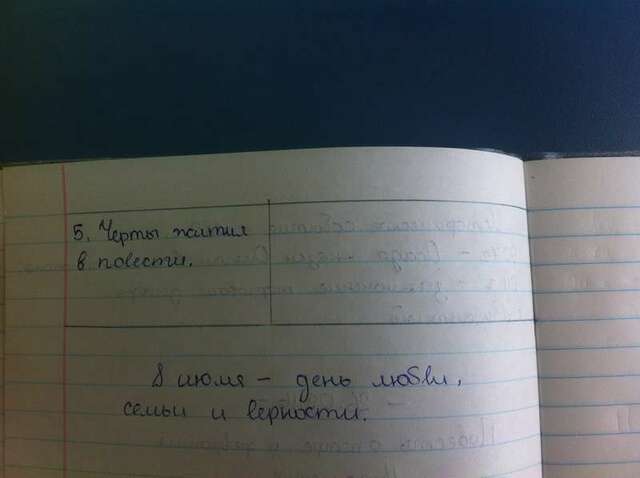 5. Черты жития
в повести.
8 июля - день любви,
семьи и верности.